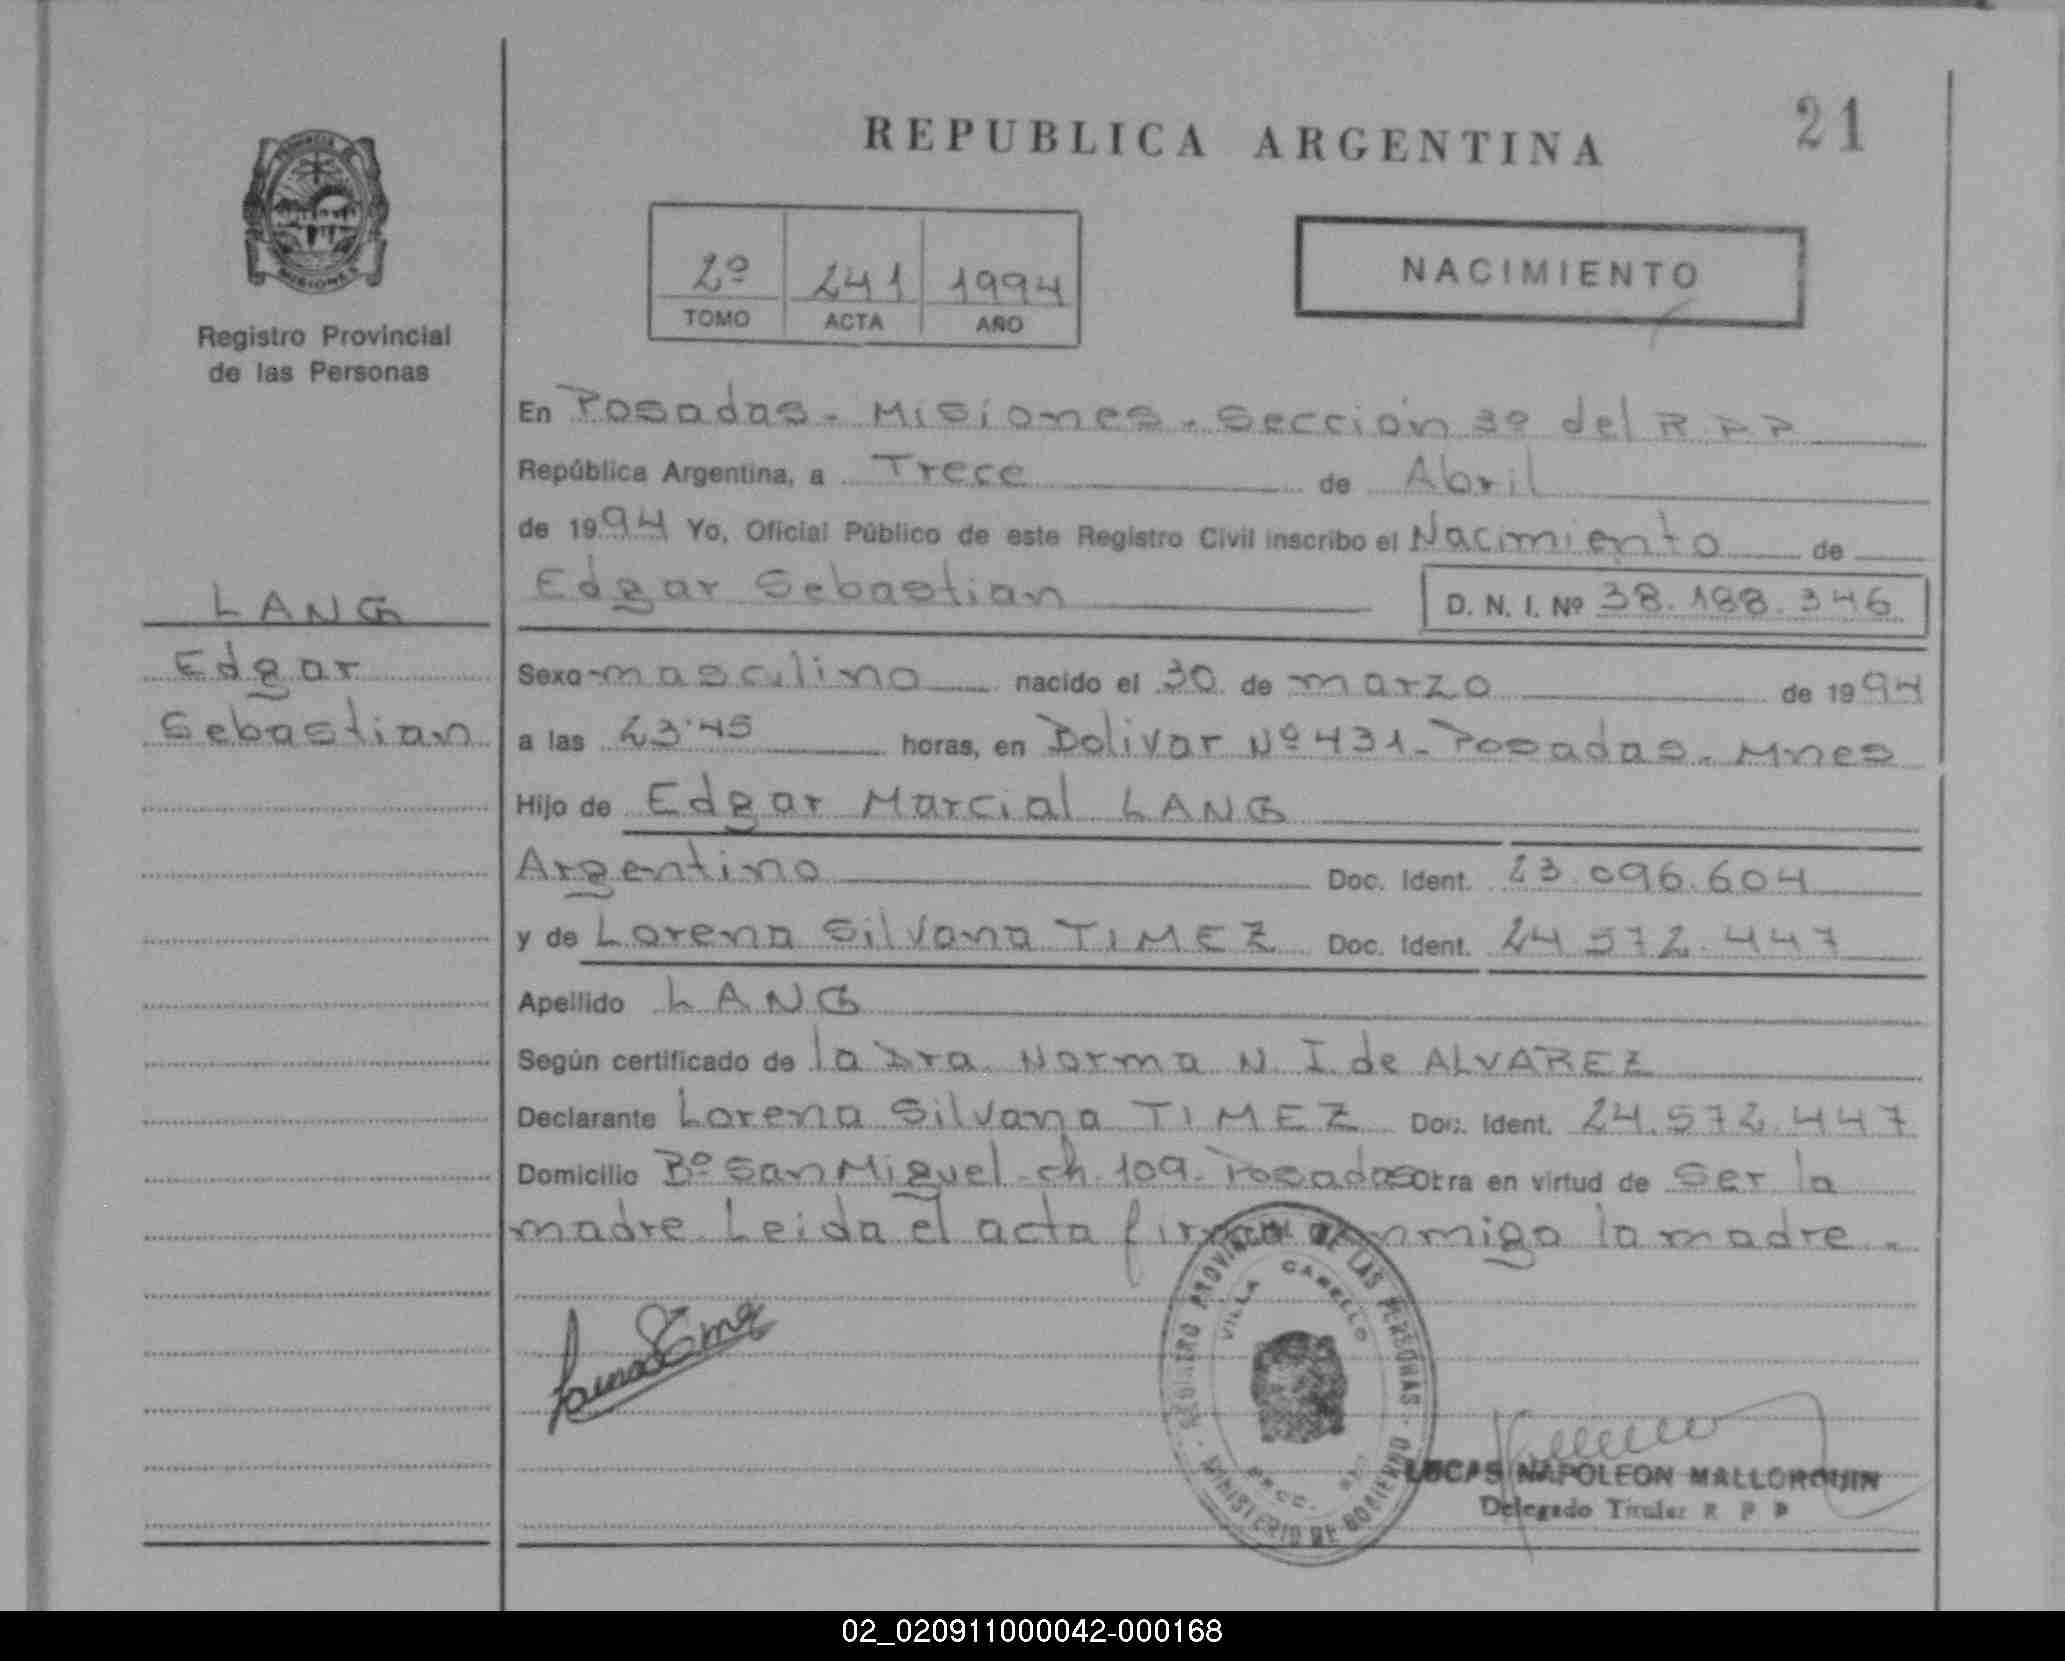 REPUBLICA ARGENTINA
21
PROVINCIA DE
MISIONES
Registro Provincial
de las Personas
2º 241 1994
TOMO ACTA AÑO
NACIMIENTO
En Posadas - Misiones - Sección 3º del R.P.P
República Argentina, a Trece de Abril
de 1994 Yo, Oficial Público de este Registro Civil inscribo el Nacimiento de
Edgar Sebastian D. N. I. Nº 38.188.346
LANG
Edgar
Sebastian
Sexo masculino nacido el 30 de marzo de 1994
a las 23:45 horas, en Bolivar Nº 431 - Posadas - Mnes
Hijo de Edgar Marcial LANG
Argentino Doc. Ident. 23.096.604
y de Lorena Silvana TIMEZ Doc. Ident. 24.572.447
Apellido LANG
Según certificado de la Dra. Norma N. I. de ALVAREZ
Declarante Lorena Silvana TIMEZ Doc. Ident. 24.572.447
Domicilio Bº San Miguel - ch. 109 - Posadas Obra en virtud de ser la
madre. Leida el acta firma conmigo la madre.
REGISTRO PROVINCIAL DE LAS PERSONAS
VILLA CABELLO
MINISTERIO DE GOBIERNO
LUCAS NAPOLEON MALLORQUIN
Delegado Titular R P P
02_020911000042-000168